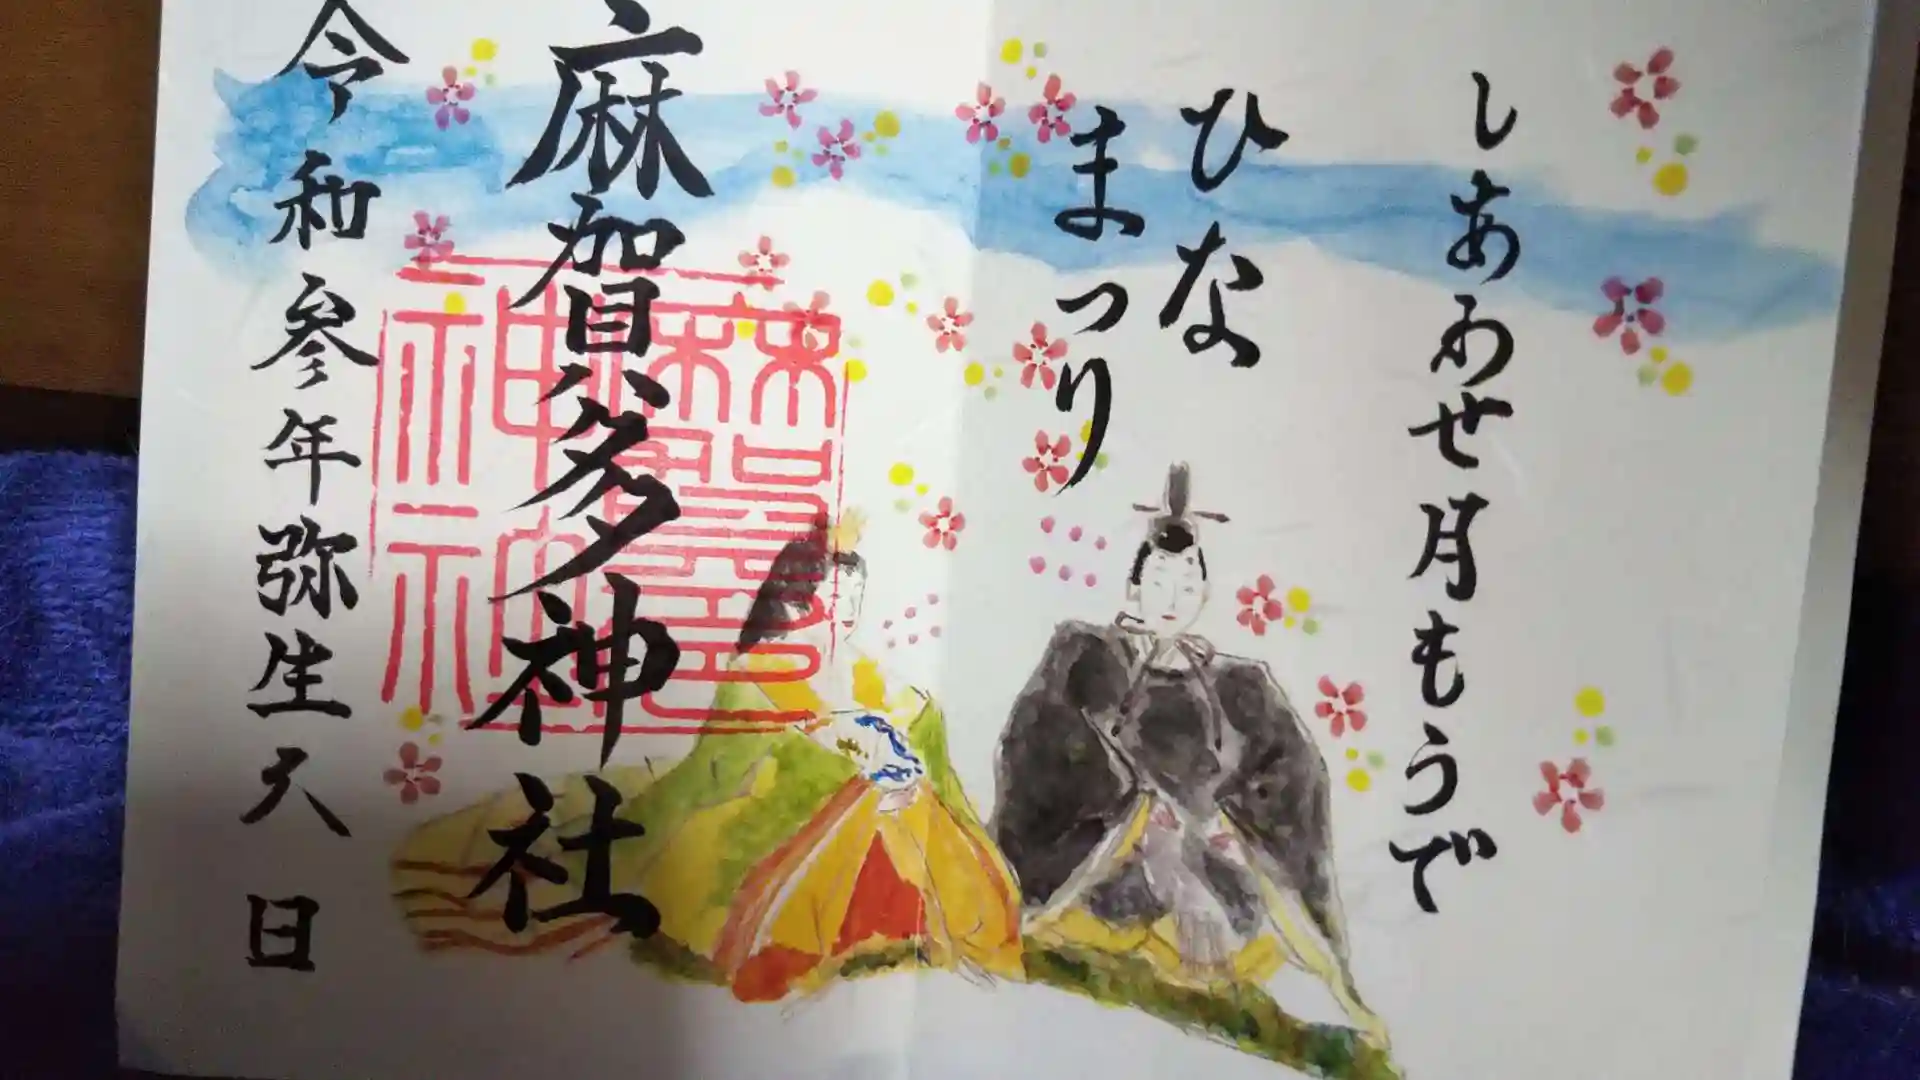 しあわせ月もうで
ひな
まつり
麻賀多神社
麻賀多神社
令和参年弥生 日